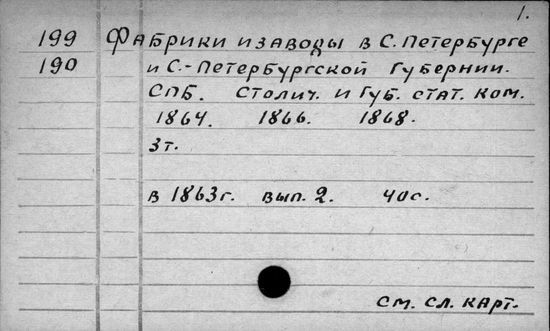 1.
199 Фабрики и заводы в С. Петербурге
190 и С.-Петербургской Губернии.
СПБ. Столич. и Губ. стат. ком.
1864. 1866. 1868.
3т.
в 1863г. вып. 2. 40с.
см. сл. карт.